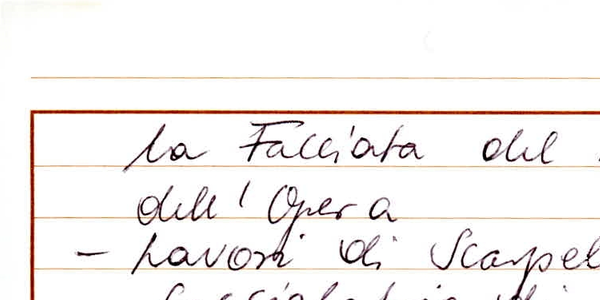 la Facciata del
dell' Opera
- Lavori di Scarpel